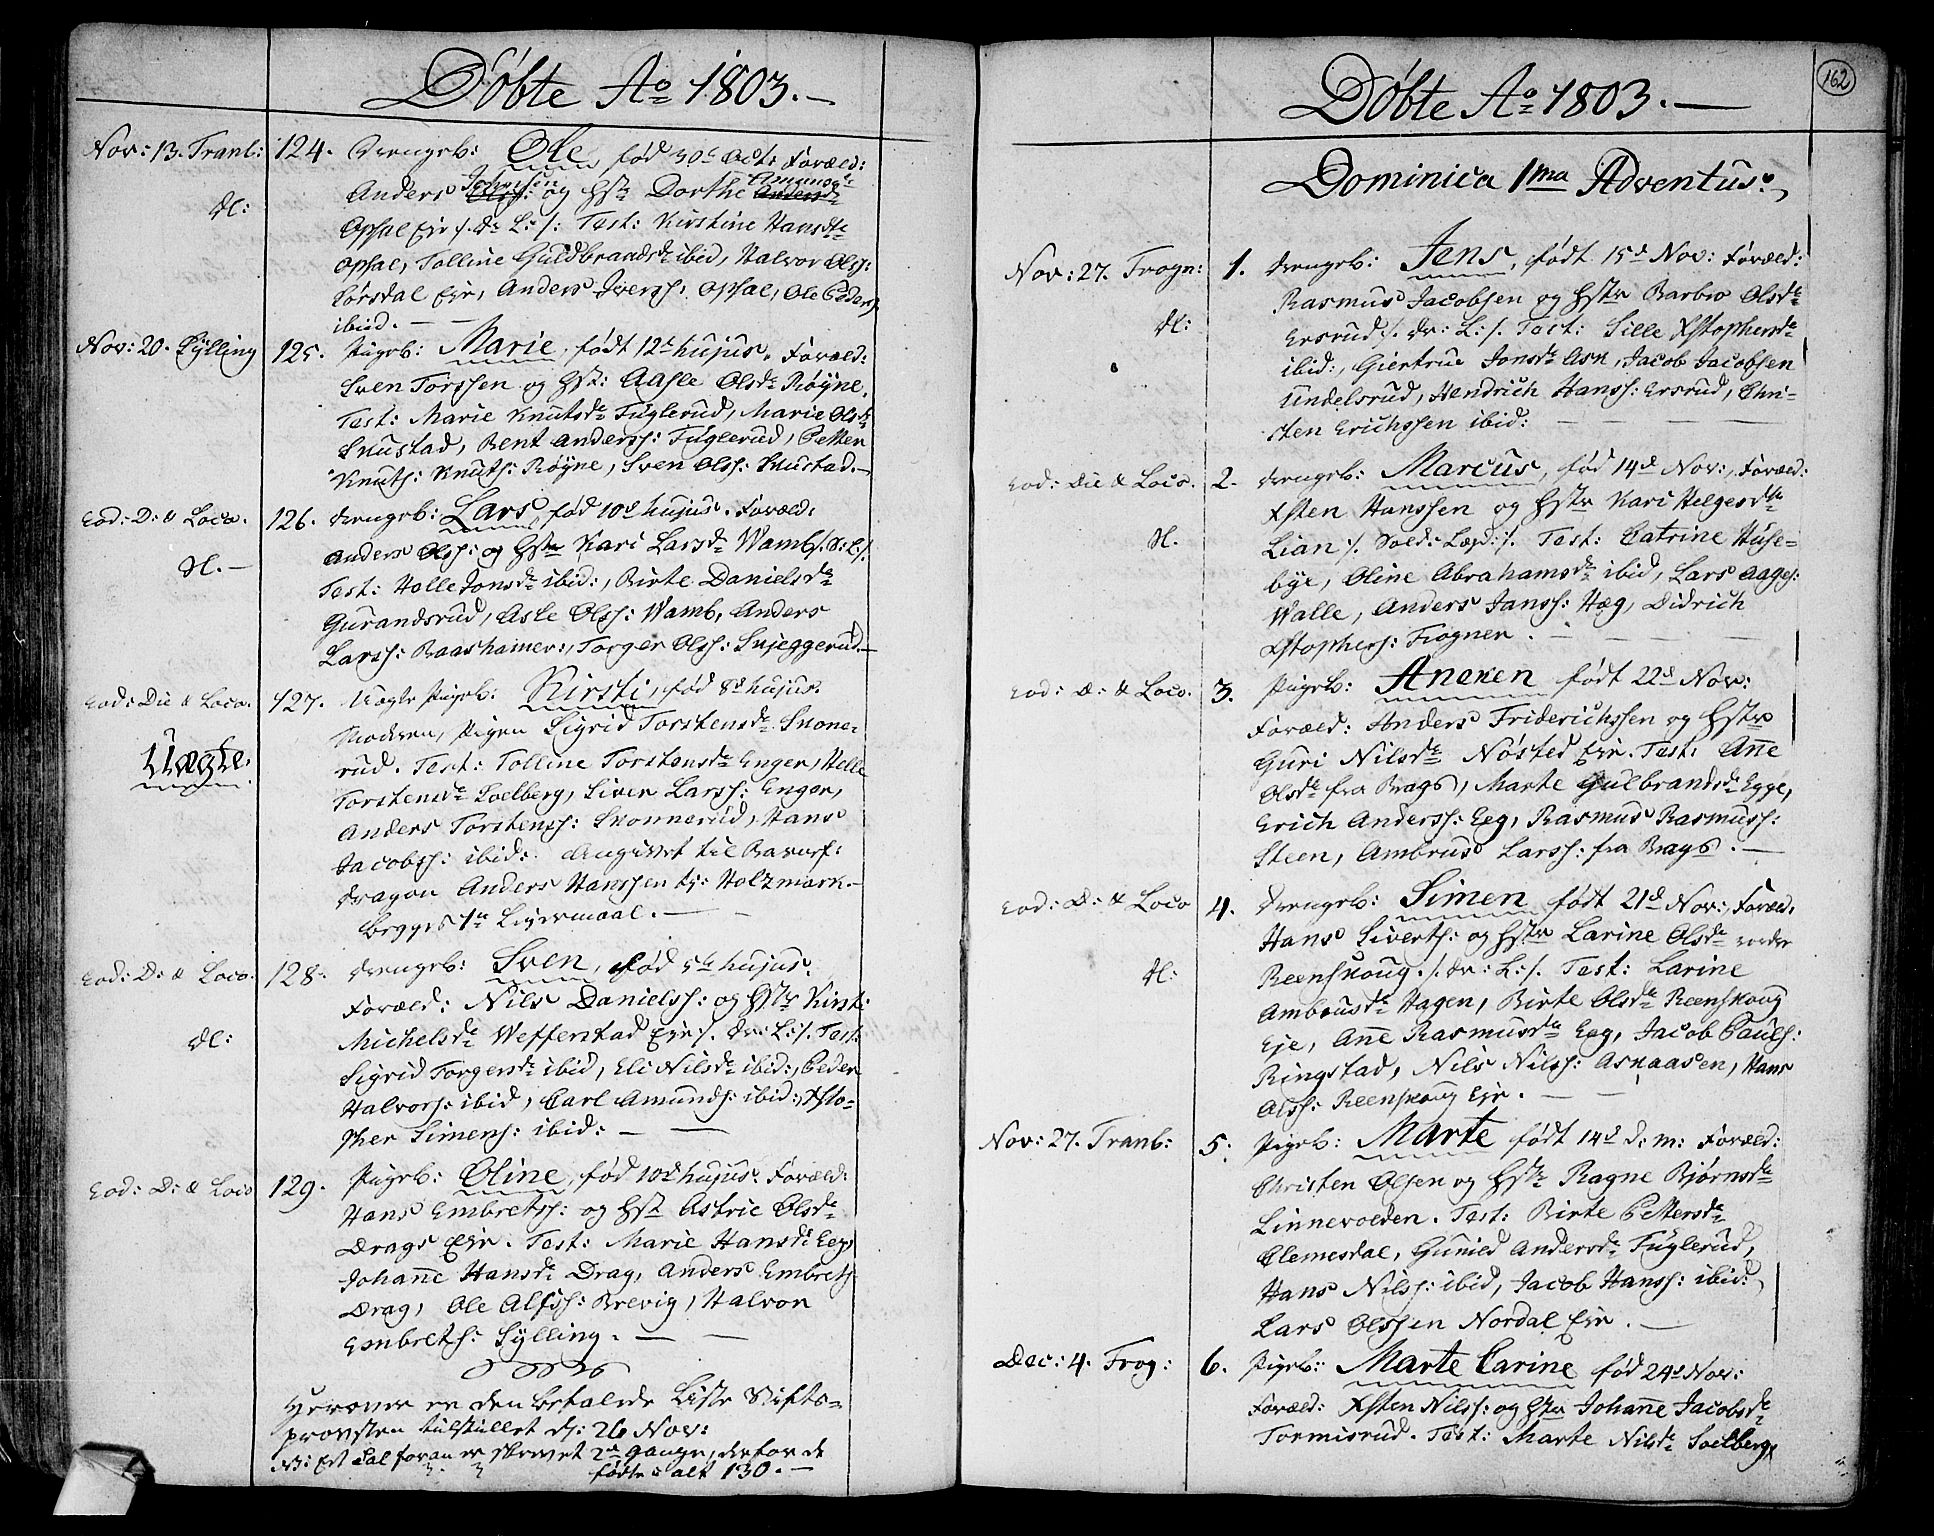 Døbte Ao 1803.
Nov: 13. Tranb: 124. Drengeb: Ole, fød 30te Oct: Foræld:
Anders Johnsen og Hstr Dorthe Amunds
dl: Opsal Eje /. dr L: /: Test: Kirstine Hansdtr
Opsal, Tolline Guldbrandsdr ibid, Halvor Olss:
Eje, Anders Iverss: Opsal, Ole Peders
ibid.
Nov: 20. Sylling 125. Pigeb: Marie, født 12te hujus. Foræld:
Sven Torssen og Hst: Aasle Olsdr Røyne.
Test: Marie Knutsdr Fuglerud, Marie Olsdr
Snustad, Bent Anderss: Fuglerud, Petter
Knuts: Knuts: Røyne, Sven Olss: Snustad.
Eod: D: & Loco. 126. Drengeb: Lars, fød 10d hujus. Foræld:
Anders Olss: og Hstr Kari Larsdr Wamb /. S: L: /.
Test: Holle Jonsdr ibid:, Birte Danielsdr
Gurandsrud, Asle Olss: Wamb, Anders
Larss: Baashamer:, Torger Olss: Snjeggerud.
Eod: Die & Loco. 127. Uægte Pigeb: Kirsti, fød 8d hujus.
Moderen, Pigen Sigrid Torstensdr Skone-
Uægte. rud. Test: Tolline Torstensdr Enger, Helle
Torstensdr Solberg, Siver Larss: Enger,
Anders Torstenss: Skonnerud, Hans
Jacobss: ibid: Angivet til Barnef:
Dragon Anders Hanssen Holtzmark.
begges 1te Leiermaal.
Eod: D: & Loco: 128: Drengeb: Sven, fød 5te hujus.
Foræld: Nils Danielss: og Hstr Kirsti
dl: Michelsdr Wefferstad Eje /. dr: L: /. Test:
Sigrid Torgersdr ibid, Eli Nilsdr ibid:, Peder
Halvors: ibid, Carl Amunds: ibid:, Xsto-
pher Simens: ibid:
Eod: D: & Loco 129. Pigeb: Oline, fød 10d hujus. Foræld:
Hans Embretss: og Hst Astrie Olsdr
Drags Eje. Test: Marie Hansdr Eeg,
Johanne Hansdr Drag, Anders Embrets
Drag, Ole Alfss: Brevig, Halvor
Embrets: Sylling.
Herover er den befalede Liste Stifts-
provsten tilstillet d: 26 Nov:
NB: Et Tal foran er skrevet 2de gange, derfor de
fødte i alt 130.
162
Døbte Ao 1803.
Dominica 1ma Adventus.
Nov: 27. Frogn: 1. Drengeb: Jens, født 15d Nov: Foræld:
Rasmus Jacobsen og Hstr Barbro Olsdr
dl: Ersrud /. dr: L: /. Test: Sille Xstophersdr
ibid:, Giertrue Jonsdr Ask, Jacob Jacobsen
Undelsrud, Hendrich Hanss: Ersrud, Chri-
sten Erichssen ibid:
Eod: Die & Loco. 2. Drengeb: Marcus, fød 14d Nov:, Foræld:
Xsten Hanssen og Hstr Kari Helgesdr
dl. Lian /. Sold: Lægd: /. Test: Catrine Huse-
bye, Oline Abrahamsdr ibid, Lars Aages:
Walle, Anders Janss: Hæg, Didrich
Xstophers: Frogner.
Eod: D: & Loco. 3. Pigeb: Aneken født 22d Nov:
Foræld: Anders Friderichssen og Hstr
Guri Nilsdr Nøsted Eje. Test: Anne
Olsdr fra Brags, Marte Gulbrandsdr Egge,
Erich Anderss: Eeg, Rasmus Rasmuss:
Steen, Ambrus Larss: fra Brags.
Eod: D: & Loco 4. Drengeb: Simen født 21d Nov:, Foræld.
Hans Siverts: og Hstr Larine Olsdr
dl: Reenskoug. /. dr: L: /. Test: Larine
Ambrusdr Hagen, Birte Olsdr Reenskoug
Eje, Anne Rasmusdr Eeg, Jacob Pauls:
Ringstad, Nils Nilss: Askaasen, Hans
Olss: Reenskoug Eje.
Nov: 27. Tranb: 5: Pigeb: Marte født 14d d: m: Foræld:
Christen Olsen og Hstr Ragne Bjørnsdr
Linnevolden. Test: Birte Pettersdr
Clemesdal, Gunild Andersdr Fuglerud,
Hans Nilss: ibid, Jacob Hanss: ibid:,
Lars Olssen Nordal Eje.
Dec: 4. Frog: 6. Pigeb: Marte Carine fød 24d Nov:
Foræld: Xsten Nilss: og Hstr Johanne Jacobsdr
Tormisrud. Test: Marte Nilsdr Solberg,